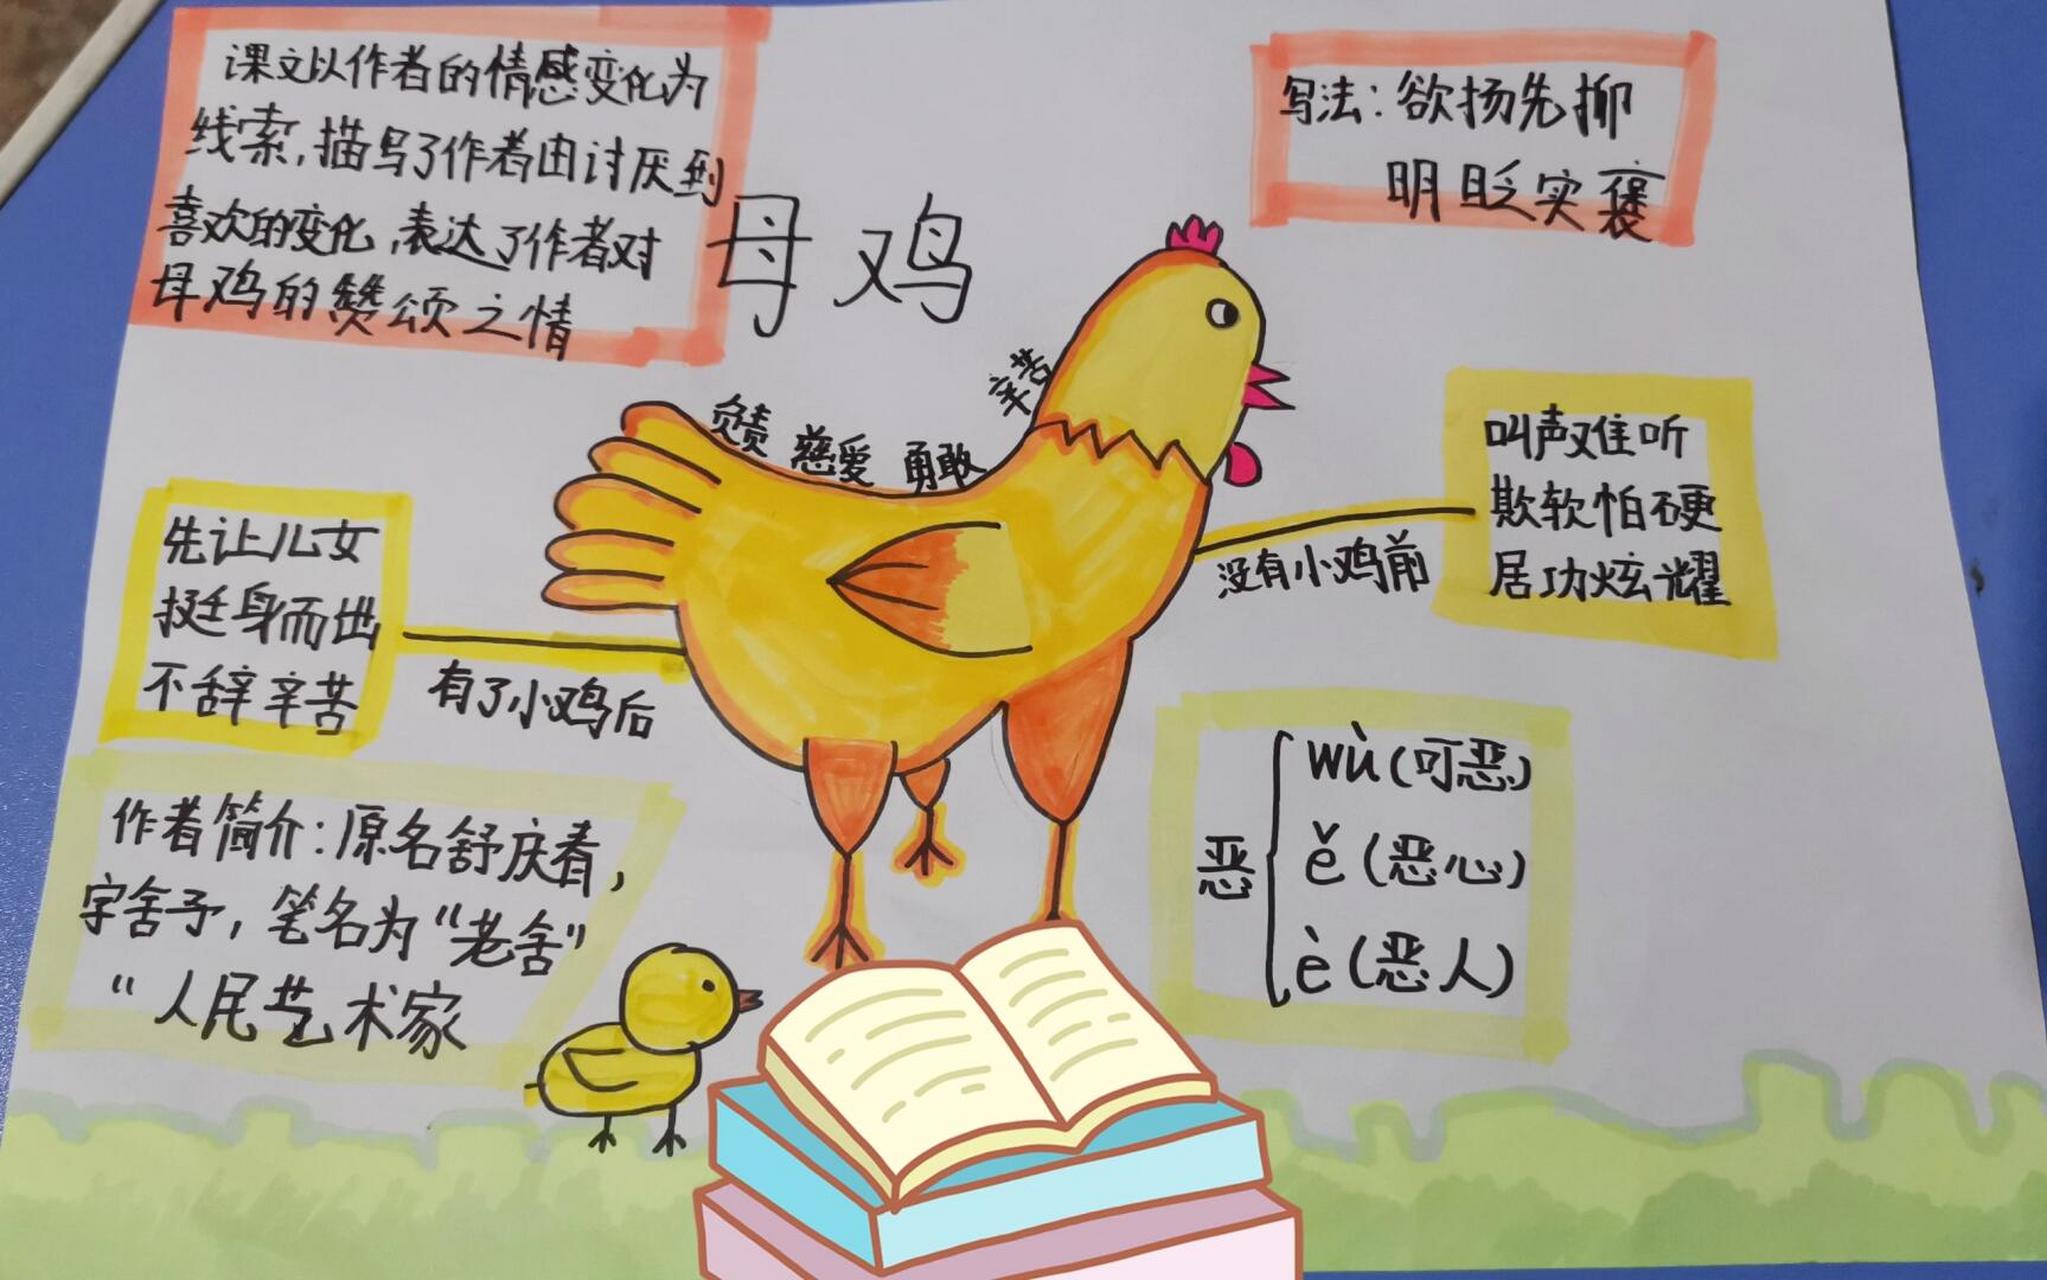 课文以作者的情感变化为
线索,描写了作者由讨厌到
喜欢的变化,表达了作者对
母鸡的赞颂之情
母鸡
写法:欲扬先抑
明贬实褒
负责 慈爱 勇敢 辛苦
叫声难听
欺软怕硬
居功炫耀
没有小鸡前
先让儿女
挺身而出
不辞辛苦
有了小鸡后
作者简介:原名舒庆春,
字舍予,笔名为“老舍”
“人民艺术家
恶
wù(可恶)
ě(恶心)
è(恶人)